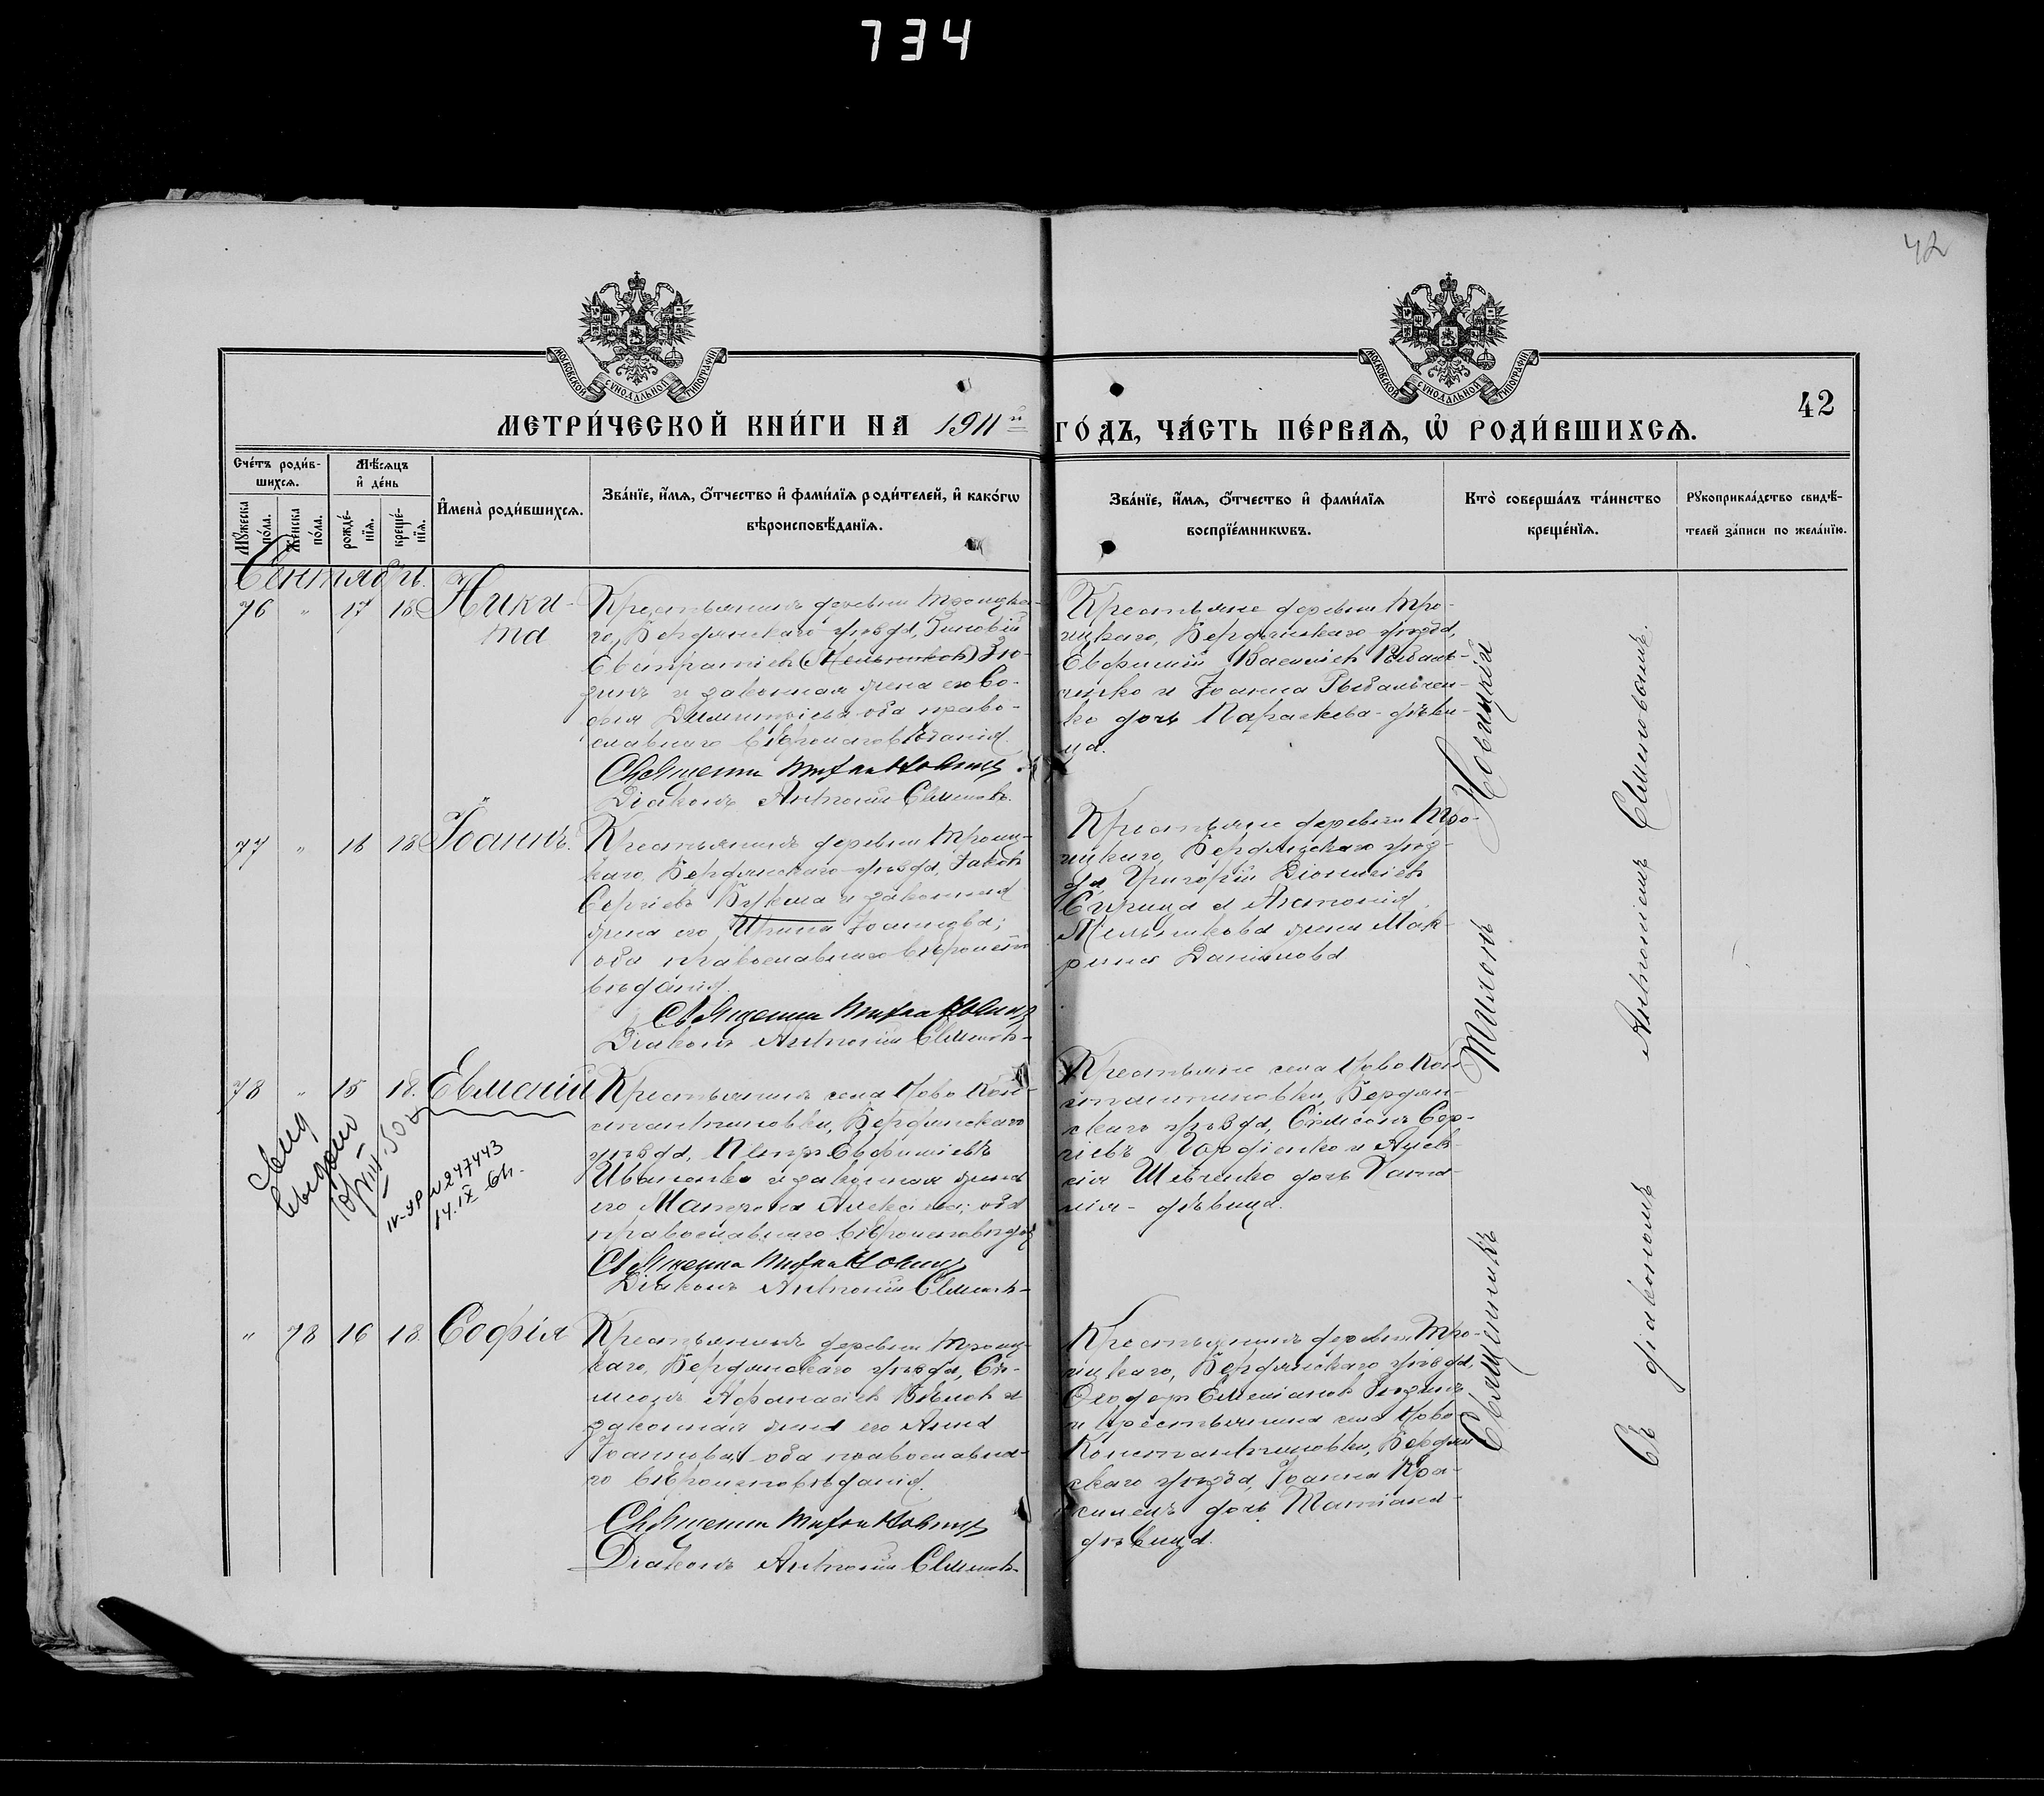 734
42
МОСКОВСКОЙ СѴНОДАЛЬНОЙ ТИПОГРАФІИ
МОСКОВСКОЙ СѴНОДАЛЬНОЙ ТИПОГРАФІИ
42
МЕТРИ́ЧЕСКОЙ КНИ́ГИ НА 1911й ГО́ДЪ, ЧА́СТЬ ПЕ́РВАѦ, Ѡ҆ РОДИ́ВШИХСѦ.
Сче́тъ роди́в-
шихсѧ.
Мѣ́сѧцъ
и҆ де́нь
Мꙋ́жеска по́ла.
Же́нска по́ла.
рожде́-
нїѧ.
креще́-
нїѧ.
И҆мена̀ роди́вшихсѧ.
Зва́нїе, и҆́мѧ, ѻ҆́тчество и҆ фами́лїѧ роди́телей, и҆ како́гѡ
вѣроисповѣ́данїѧ.
Зва́нїе, и҆́мѧ, ѻ҆́тчество и҆ фами́лїѧ
воспрїе́мникѡвъ.
Кто̀ соверша́лъ та́инство
креще́нїѧ.
Рꙋкоприкла́дство свидѣ́-
телей за́писи по жела́нїю.
Сентябрь.
76 " 17 18 Ники-
та
Крестьянинъ деревни Троицка-
го, Бердянскаго уѣзда, Зиновій
Евстратіевъ (Мельниковъ) Зю-
зинъ и законная жена его Со-
фія Димитріева оба право-
славнаго вѣроисповѣданія.
Священни Тихон Новицк
Діаконъ Антоній Семенов
Крестьяне деревни Тро-
ицкаго, Бердянскаго уѣзда,
Евфимій Василіев Рыбаль-
ченко и Іоанна Рыбальчен-
ко дочь Параскева - дѣви-
ца.
77 " 16 18 Іоаннъ.
Крестьянинъ деревни Троиц-
каго, Бердянскаго уѣзда, Іаков
Сергіевъ Букша и законная
жена его Ирина Іоаннова;
оба православнаго вѣроиспо
вѣданія.
Священни Тихон Новиц
Діаконъ Антоній Семенов
Крестьяне деревни Тро-
ицкаго, Бердянскаго уѣз-
да, Григорій Діонисіев
и Антонія
Мельникова жена Мак-
рина Даніилова
78 " 15 18. Евменій
Крестьянинъ села Ново Кон-
стантиновки, Бердянскаго
уѣзда, Петръ Евфиміевъ
Иваненко и законная жена
его Матрона Алексіева; оба
православнаго вѣроисповѣда
Священни Тихон Новиц
Діаконъ Антоній Семенов
Крестьяне села Ново Кон
стантиновки, Бердян-
скаго уѣзда, Симеонъ Сер-
гіевъ Гордіенко и Алек-
сія Шевченко дочь
- дѣвица.
IV-УР №247443
14.IX-61г.
" 78 16 18 Софія
Крестьянинъ деревни Троиц-
каго, Бердянскаго уѣзда, Си-
меонъ Афанасіев и
законная жена его Анна
Іоаннова, оба православна-
го вѣроисповѣданія.
Священни Тихон Новицк
Діаконъ Антоній Семенов
Крестьянинъ деревни Тро-
ицкаго, Бердянскаго уѣзда,
Ѳеодор Зюзинъ
и крестьянина села Ново-
Константиновки, Бердян
скаго уѣзда, Іоанна
дочь Татіана -
дѣвица.
Священникъ Тихонъ Новицкій
Съ діакономъ Антоніемъ Семеновымъ.